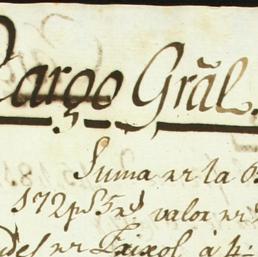 Cargo Grãl.
Suma nr la
172ps 5rs valor nr
nr Frixol, à 4